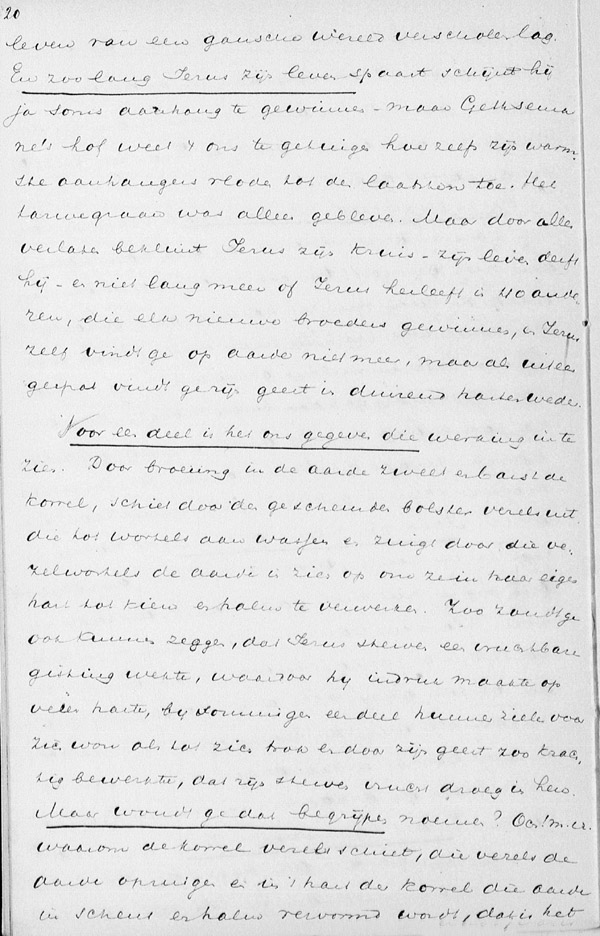 20
leven van een gansche wereld verscholen lag.
En zoolang Jezus zijn leven spaart schijnt hij
ja soms aanhang te gewinnen - maar Gethsema
né's hof weet 't ons te getuigen hoe zelfs zijn warm-
ste aanhangers vloden tot den laatsten toe. Het
tarwegraan was alleen gebleven. Maar door allen
verlaten beklimt Jezus zijn kruis - zijn leven derft
hij - en niet lang meer of Jezus herleeft in 40 ande-
ren, die elk nieuwe broeders gewinnen, en Jezus
zelf vindt ge op aarde niet meer, maar als uiteen
gespat vindt ge zijn geest in duizend harten weder.
Voor een deel is het ons gegeven die werking in te
zien. Door broeiing in de aarde zwelt en barst de
korrel, schiet door den gescheurden bolster vezels uit
die tot wortels aan wassen en zuigt door die ve-
zelwortels de aarde in zich op om ze in haar eigen
hart tot kiem en halm te verwerken. Zoo zoudt ge
ook kunnen zeggen, dat Jezus sterven een vruchtbare
gisting wekte, waardoor hij indruk maakte op
veler harte, bij sommigen een deel hunner ziele voor
zich won als tot zich trok en door zijn geest zoo krach-
tig bewerkte, dat zijn sterven vrucht droeg in hen.
Maar woudt ge dat begrijpen noemen? Och! m. vr.
waarom de korrel vezels schiet, die vezels de
aarde opzuigen en in 't hart der korrel die aarde
in scheut en halm vervormd wordt, dat is het